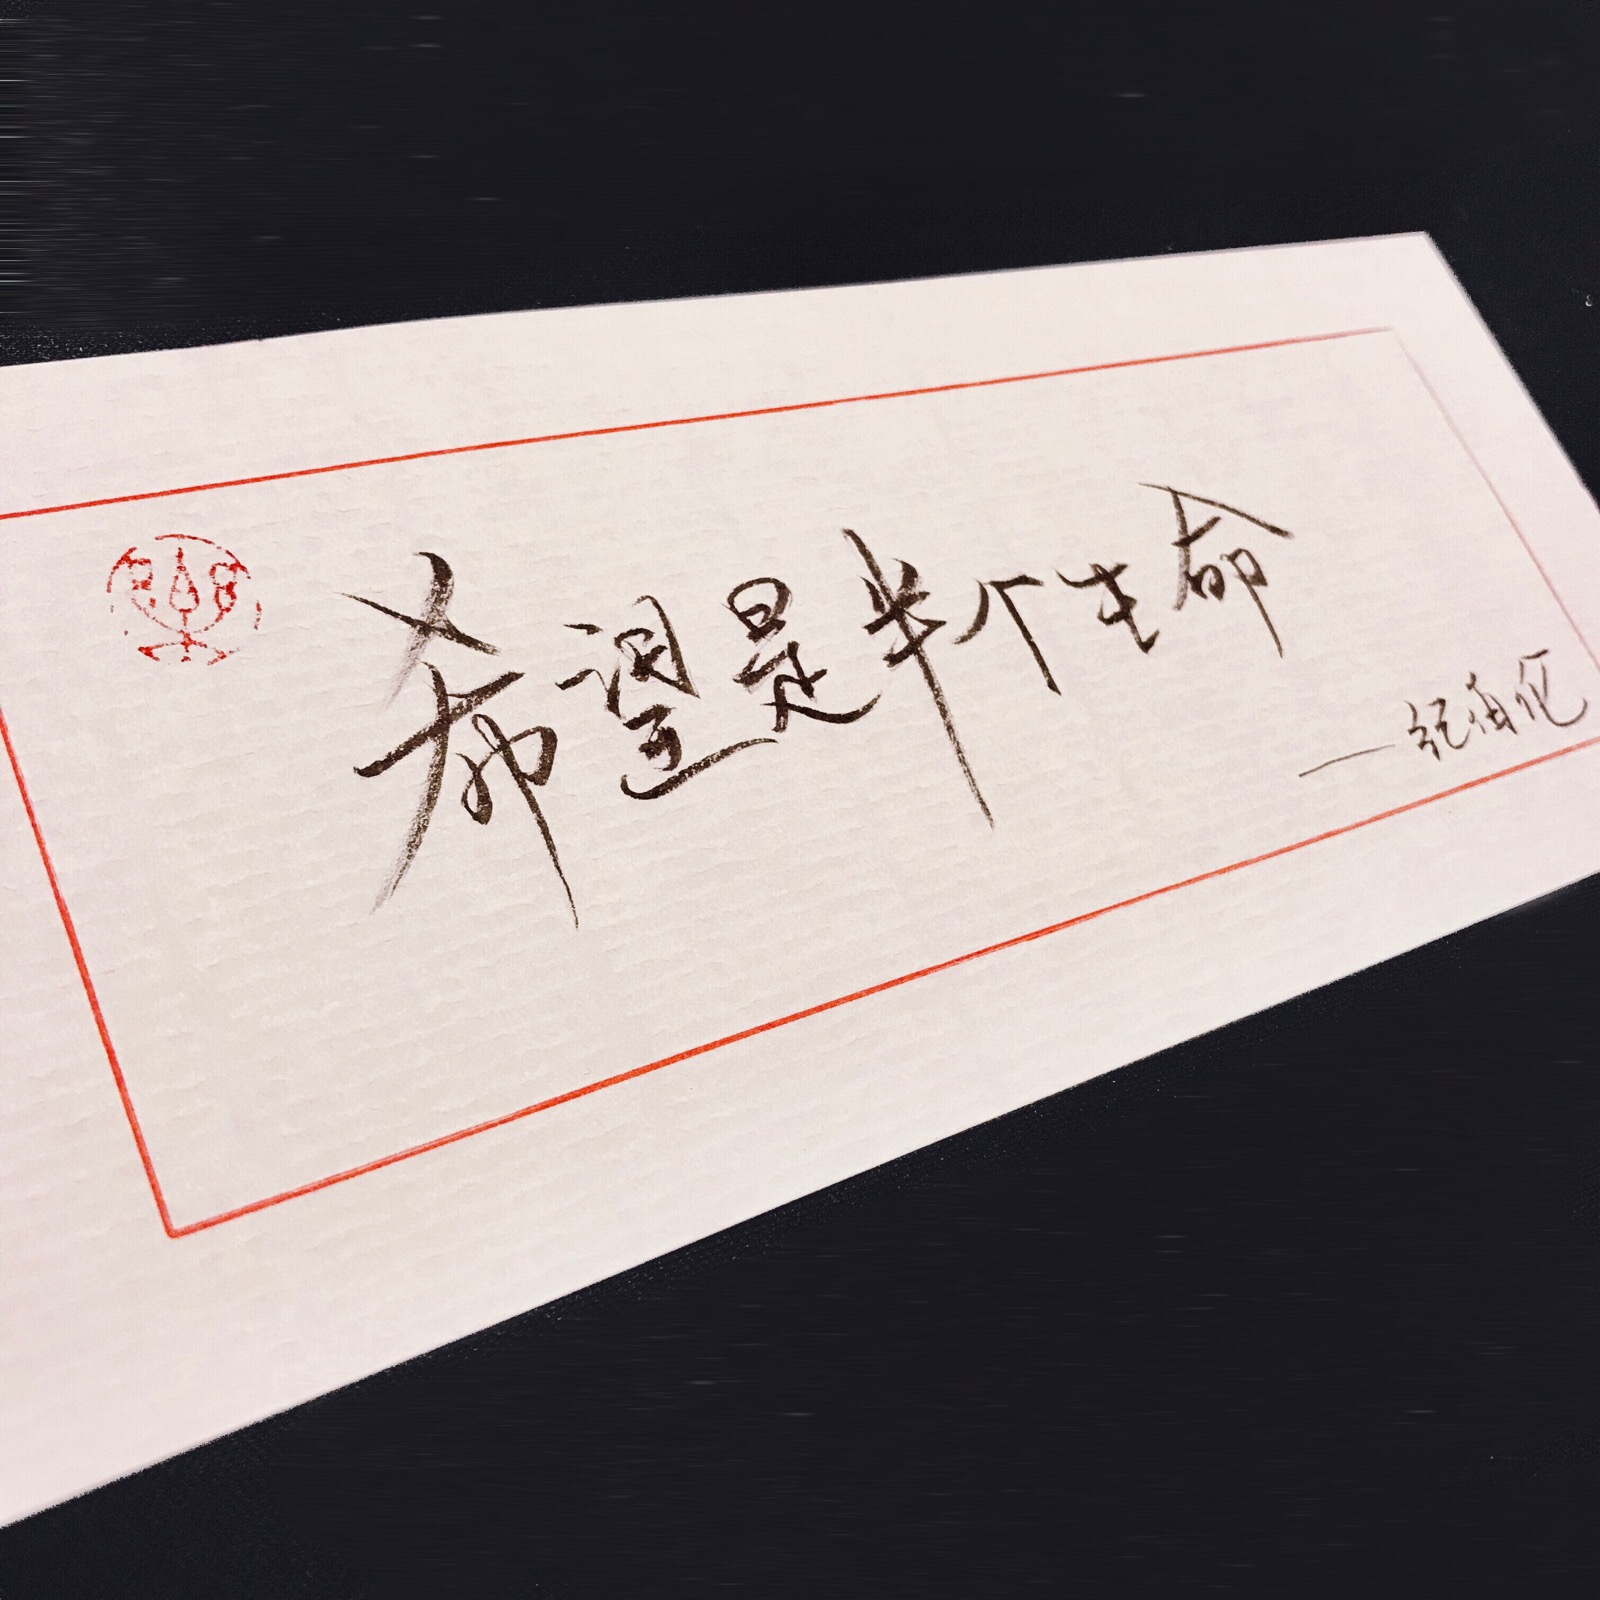 希望是半个生命
——纪伯伦